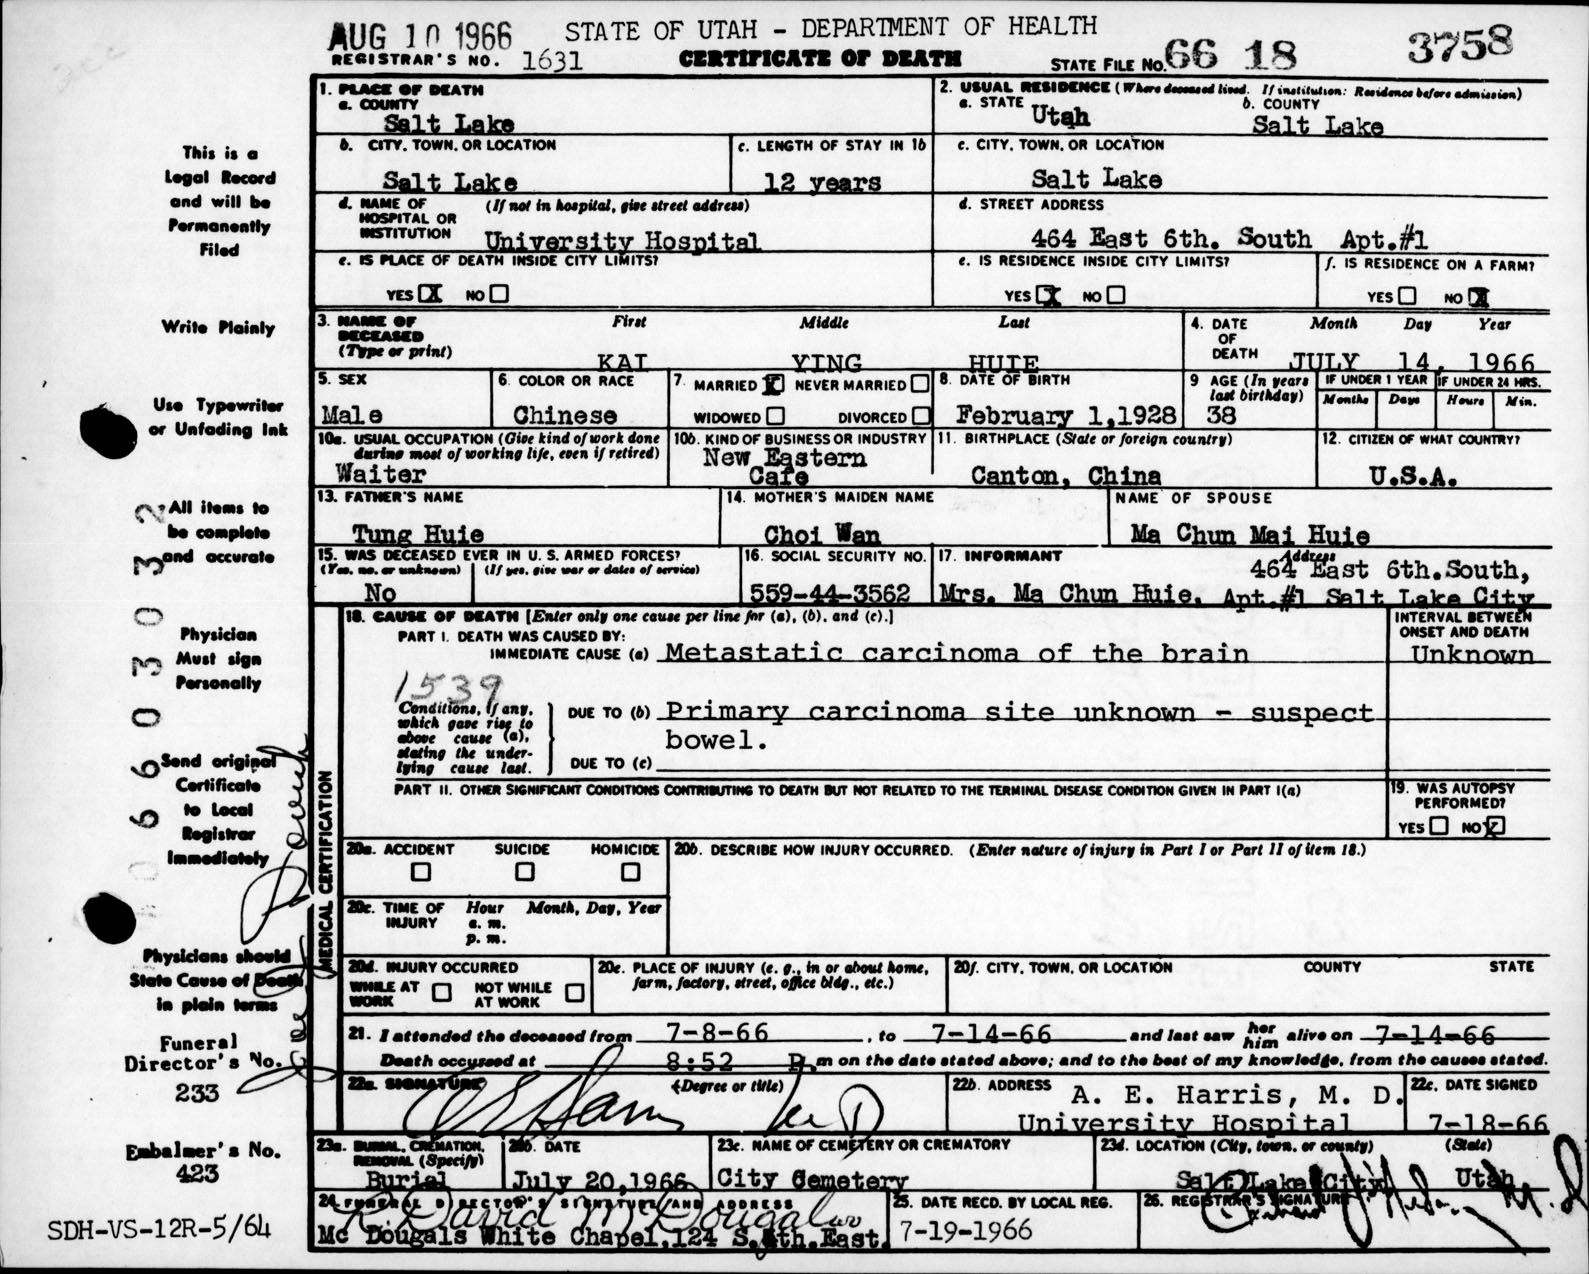 AUG 10 1966 STATE OF UTAH - DEPARTMENT OF HEALTH
REGISTRAR'S NO. 1631 CERTIFICATE OF DEATH STATE FILE NO. 66 18 3758
1. PLACE OF DEATH
a. COUNTY
Salt Lake
2. USUAL RESIDENCE (Where deceased lived. If institution: Residence before admission)
a. STATE Utah b. COUNTY
Salt Lake
b. CITY, TOWN, OR LOCATION
Salt Lake
c. LENGTH OF STAY IN 1b
12 years
c. CITY, TOWN, OR LOCATION
Salt Lake
d. NAME OF HOSPITAL OR INSTITUTION (If not in hospital, give street address)
University Hospital
d. STREET ADDRESS
464 East 6th. South Apt.#1
e. IS PLACE OF DEATH INSIDE CITY LIMITS?
YES X NO
e. IS RESIDENCE INSIDE CITY LIMITS?
YES X NO
f. IS RESIDENCE ON A FARM?
YES NO X
3. NAME OF DECEASED (Type or print)
First Middle Last
KAI YING HUIE
4. DATE OF DEATH Month Day Year
JULY 14, 1966
5. SEX
Male
6. COLOR OR RACE
Chinese
7. MARRIED X NEVER MARRIED
WIDOWED DIVORCED
8. DATE OF BIRTH
February 1,1928
9 AGE (In years last birthday)
38
IF UNDER 1 YEAR IF UNDER 24 HRS.
Months Days Hours Min.
10a. USUAL OCCUPATION (Give kind of work done during most of working life, even if retired)
Waiter
10b. KIND OF BUSINESS OR INDUSTRY
New Eastern
Cafe
11. BIRTHPLACE (State or foreign country)
Canton, China
12. CITIZEN OF WHAT COUNTRY?
U.S.A.
13. FATHER'S NAME
Tung Huie
14. MOTHER'S MAIDEN NAME
Choi Wan
NAME OF SPOUSE
Ma Chun Mai Huie
15. WAS DECEASED EVER IN U. S. ARMED FORCES?
(Yes, no, or unknown) (If yes, give war or dates of service)
No
16. SOCIAL SECURITY NO.
559-44-3562
17. INFORMANT Address
464 East 6th.South,
Mrs. Ma Chun Huie, Apt.#1 Salt Lake City
MEDICAL CERTIFICATION
18. CAUSE OF DEATH [Enter only one cause per line for (a), (b), and (c).]
INTERVAL BETWEEN ONSET AND DEATH
PART I. DEATH WAS CAUSED BY:
IMMEDIATE CAUSE (a) Metastatic carcinoma of the brain Unknown
1539
Conditions, if any, which gave rise to above cause (a), stating the underlying cause last.
DUE TO (b) Primary carcinoma site unknown - suspect
bowel.
DUE TO (c)
PART II. OTHER SIGNIFICANT CONDITIONS CONTRIBUTING TO DEATH BUT NOT RELATED TO THE TERMINAL DISEASE CONDITION GIVEN IN PART I(a)
19. WAS AUTOPSY PERFORMED?
YES NO X
20a. ACCIDENT SUICIDE HOMICIDE
20b. DESCRIBE HOW INJURY OCCURRED. (Enter nature of injury in Part I or Part II of item 18.)
20c. TIME OF INJURY Hour Month, Day, Year
a. m.
p. m.
20d. INJURY OCCURRED
WHILE AT WORK NOT WHILE AT WORK
20e. PLACE OF INJURY (e. g., in or about home, farm, factory, street, office bldg., etc.)
20f. CITY, TOWN, OR LOCATION COUNTY STATE
21. I attended the deceased from 7-8-66, to 7-14-66 and last saw her him alive on 7-14-66
Death occurred at 8:52 P.m on the date stated above; and to the best of my knowledge, from the causes stated.
22a. SIGNATURE (Degree or title)
22b. ADDRESS A. E. Harris, M. D.
University Hospital
22c. DATE SIGNED
7-18-66
23a. BURIAL, CREMATION, REMOVAL (Specify)
Burial
23b. DATE
July 20,1966
23c. NAME OF CEMETERY OR CREMATORY
City Cemetery
23d. LOCATION (City, town, or county) (State)
Salt Lake City Utah
24. FUNERAL DIRECTOR'S SIGNATURE AND ADDRESS
David McDougal
Mc Dougals White Chapel,124 S.4th.East.
25. DATE RECD. BY LOCAL REG.
7-19-1966
26. REGISTRAR'S SIGNATURE
This is a
Legal Record
and will be
Permanently
Filed
Write Plainly
Use Typewriter
or Unfading Ink
All items to
be complete
and accurate
Physician
Must sign
Personally
Send original
Certificate
to Local
Registrar
Immediately
Physicians should
State Cause of Death
in plain terms
Funeral
Director's No.
233
Embalmer's No.
423
SDH-VS-12R-5/64